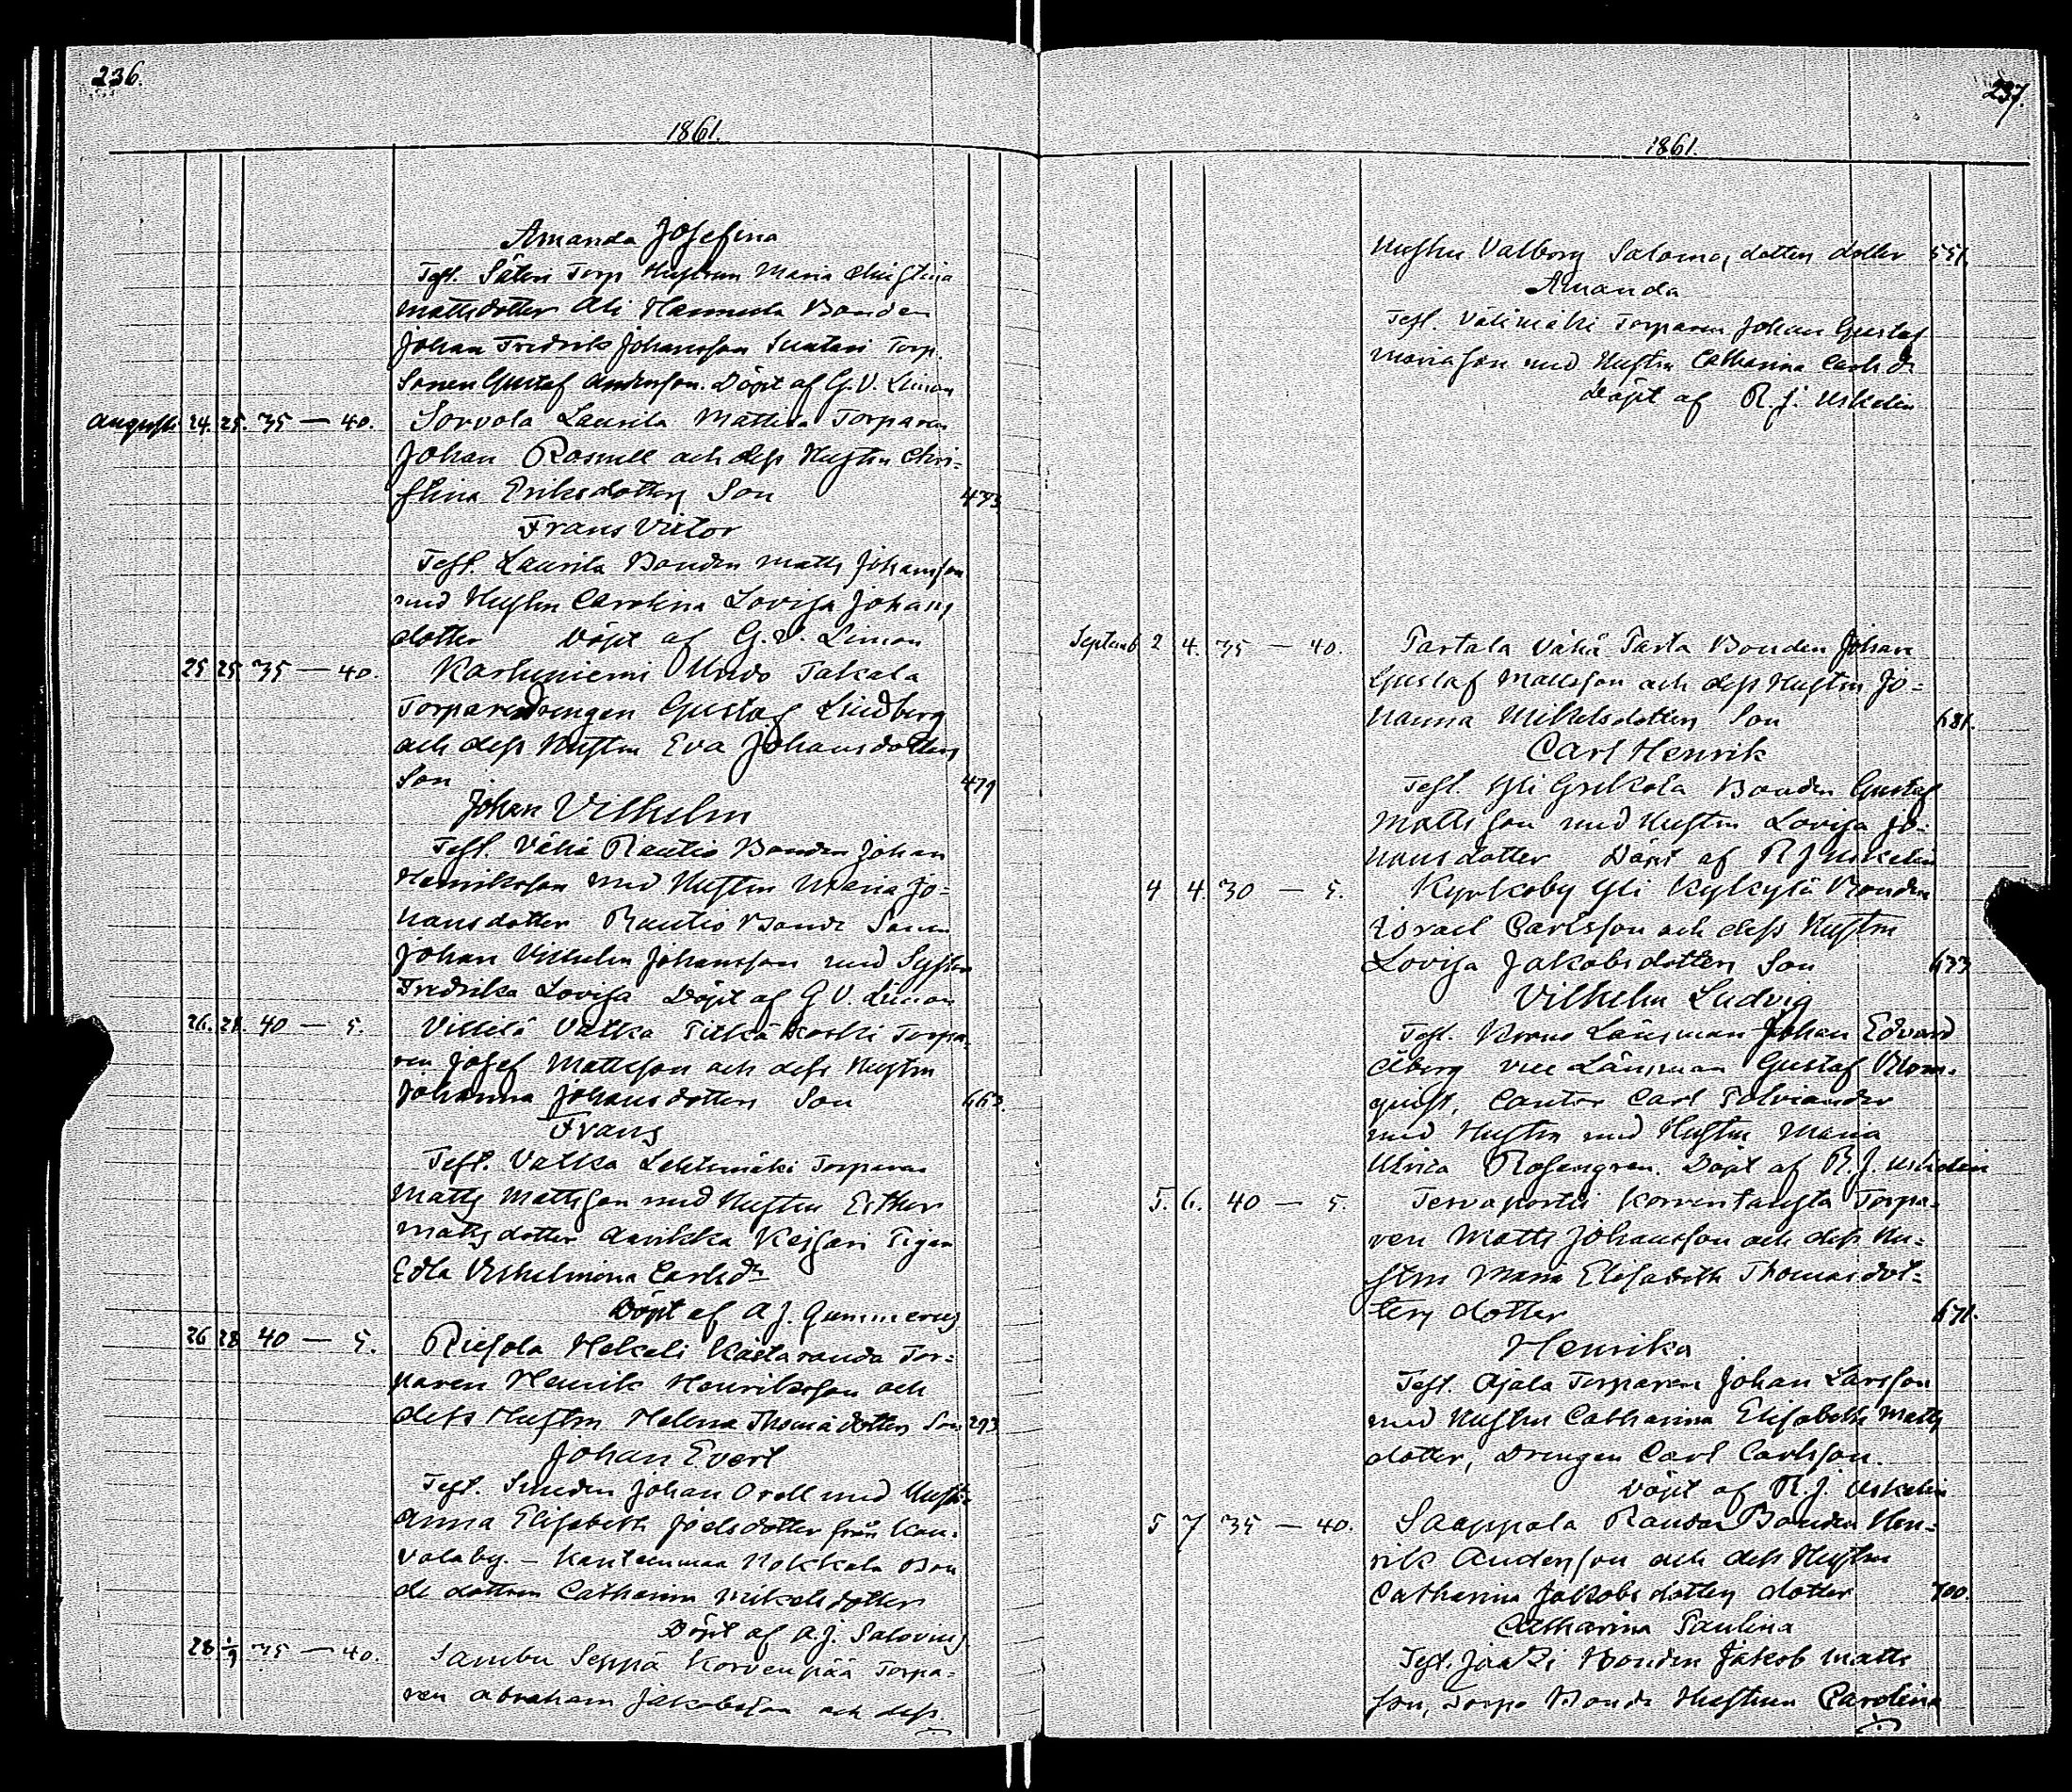 236.
1861.
Amanda Josefina
Test. Säteri Torp Hustrun Maria Christina
Mattsdotter Ali Hannula Bonden
Johan Fredrik Johansson Suutari Torp.
Sonen Gustaf Andersson. Döpt af G. V. Limon
Augusti 24. 25. 35 — 40. Sorvola Laurila Mattila Torparen
Johan Rosnell och dess Hustru Chri-
stina Eriksdotters Son 473
Frans Victor
Test. Laurila Bonden Matts Johansson
med Hustru Carolina Lovisa Johans
dotter Döpt af G. V. Limon
25 25 35 — 40. Karhuniemi Takala
Torpare Drengen Gustaf Lindberg
och dess Hustru Eva Johansdotters
Son 479
Johan Vilhelm
Test. Vähä Rautio Bonden Johan
Henriksson med Hustru Maria Jo-
hansdotter Rautio Bonde Sonen
Johan Vilhelm Johansson med Syster
Fredrika Lovisa Döpt af G V. Limon
26. 28. 40 — 5. Villilä Vatka Pitkäkoski Torpa-
ren Josef Mattsson och dess Hustru
Johanna Johansdotters Son 663.
Frans
Test. Vatka Lehtimäki Torparen
Matts Mattsson med Hustru Esther
Mattsdotter Keisari Pigan
Edla Vilhelmina Carlsdr
Döpt af A J. Gummerus
26 28 40 — 5. Riesola Hekeli Kästaranda Tor-
paren Henrik Henriksson och
dess Hustru Helena Thomädotters Son 293
Johan Evert
Test. Smeden Johan Orell med Hustr.
Anna Elisabeth Joelsdotter från Kau-
vola by. — Kanteenmaa Nokkala Bon
de dottren Catharina Mikelsdotter
Döpt af A. J. Salovius
28 1/9 35 — 40. Sambu Seppä Korvenpää Torpa-
ren Abraham Jakobsson och dess
237.
1861.
Hustru Valborg Salomos dotters dotter 551.
Amanda
Test. Välimäki Torparen Johan Gustaf
Mariasson med Hustru Catharina Carlsdr
Döpt af R. J. Uskelin
Septemb 2 4. 35 — 40. Partala Vähä Parta Bonden Johan
Gustaf Mattsson och dess Hustru Jo-
hanna Mikelsdotters Son 681.
Carl Henrik
Test. Yli Grekola Bonden Gustaf
Mattsson med Hustru Lovisa Jo-
hansdotter Döpt af R J Uskelin
4 4. 30 — 5. Kyrkoby Yli Kylkylä Bonden
Israel Carlsson och dess Hustru
Lovisa Jakobsdotters Son 633
Vilhelm Ludvig
Test. Krono Länsman Johan Edvard
Åberg vice Länsman Gustaf Blom-
quist, Cantor Carl Palviander
med Hustru med Hustru Maria
Ulrica Rosengren. Döpt af R. J. Uskelin
5. 6. 40 — 5. Tervaportti Korventausta Torpa-
ren Matts Johansson och dess Hu-
stru Maria Elisabeth Thomasdot-
ters dotter 671.
Henrika
Test. Ojala Torparen Johan Larsson
med Hustru Catharina Elisabeth Matts
dotter, Drengen Carl Carlsson.
Döpt af R. J. Uskelin
5 7 35 — 40. Saappala Rauda Bonden Hen-
rik Andersson och dess Hustru
Catharina Jakobsdotters dotter 700.
Catharina Paulina
Test. Jaakki Bonden Jakob Matts
son, Torpo Bonde Hustrun Carolina